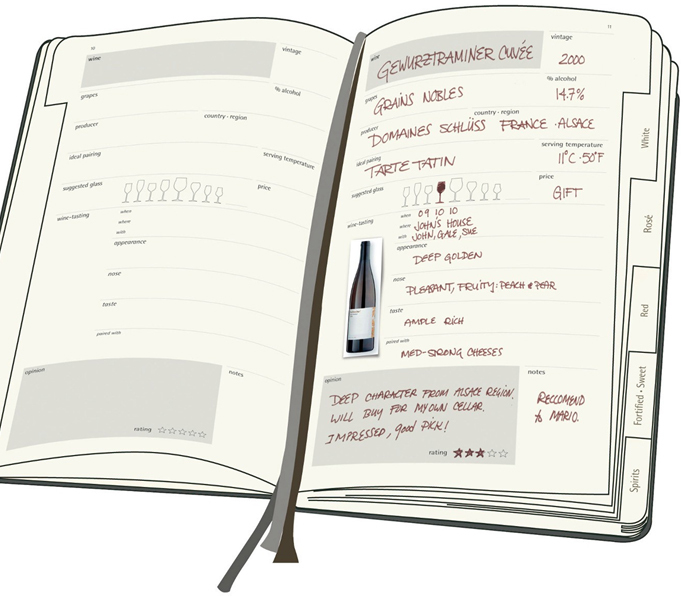 10
wine
vintage
grapes
% alcohol
producer
country · region
ideal pairing
serving temperature
suggested glass
price
wine-tasting
when
where
with
appearance
nose
taste
paired with
opinion
notes
rating
11
wine GEWURZTRAMINER CUVÉE
vintage
2000
grapes GRAINS NOBLES
% alcohol
14.7%
producer
country · region
DOMAINES SCHLÜSS FRANCE · ALSACE
ideal pairing
TARTE TATIN
serving temperature
11°C · 50°F
suggested glass
price
GIFT
wine-tasting
when 09 10 10
where JOHN'S HOUSE
with JOHN, GALE, SUE
appearance
DEEP GOLDEN
nose
PLEASANT, FRUITY: PEACH & PEAR
taste
AMPLE RICH
paired with
MED-STRONG CHEESES
opinion
DEEP CHARACTER FROM ALSACE REGION.
WILL BUY FOR MY OWN CELLAR.
IMPRESSED, good PICK!
rating
notes
RECCOMEND
to MARIO.
White
Rosé
Red
Fortified · Sweet
Spirits